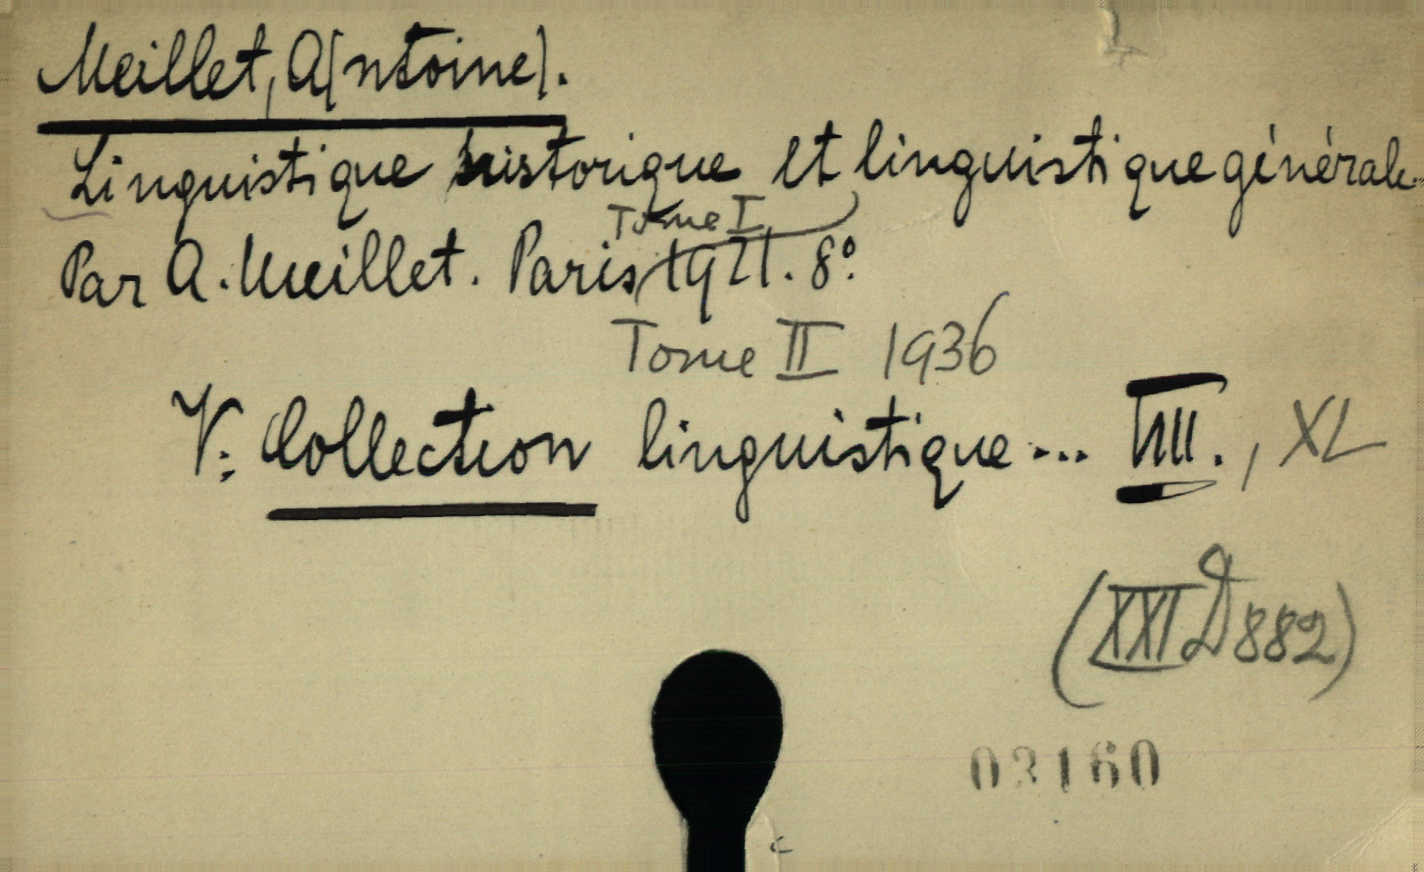 Meillet, A[ntoine].
Linguistique historique et linguistique générale.
Tome I
Par A. Meillet. Paris, 1921. 8°.
Tome II 1936
V: Collection linguistique... VIII., XL
(XXI D 882)
03160